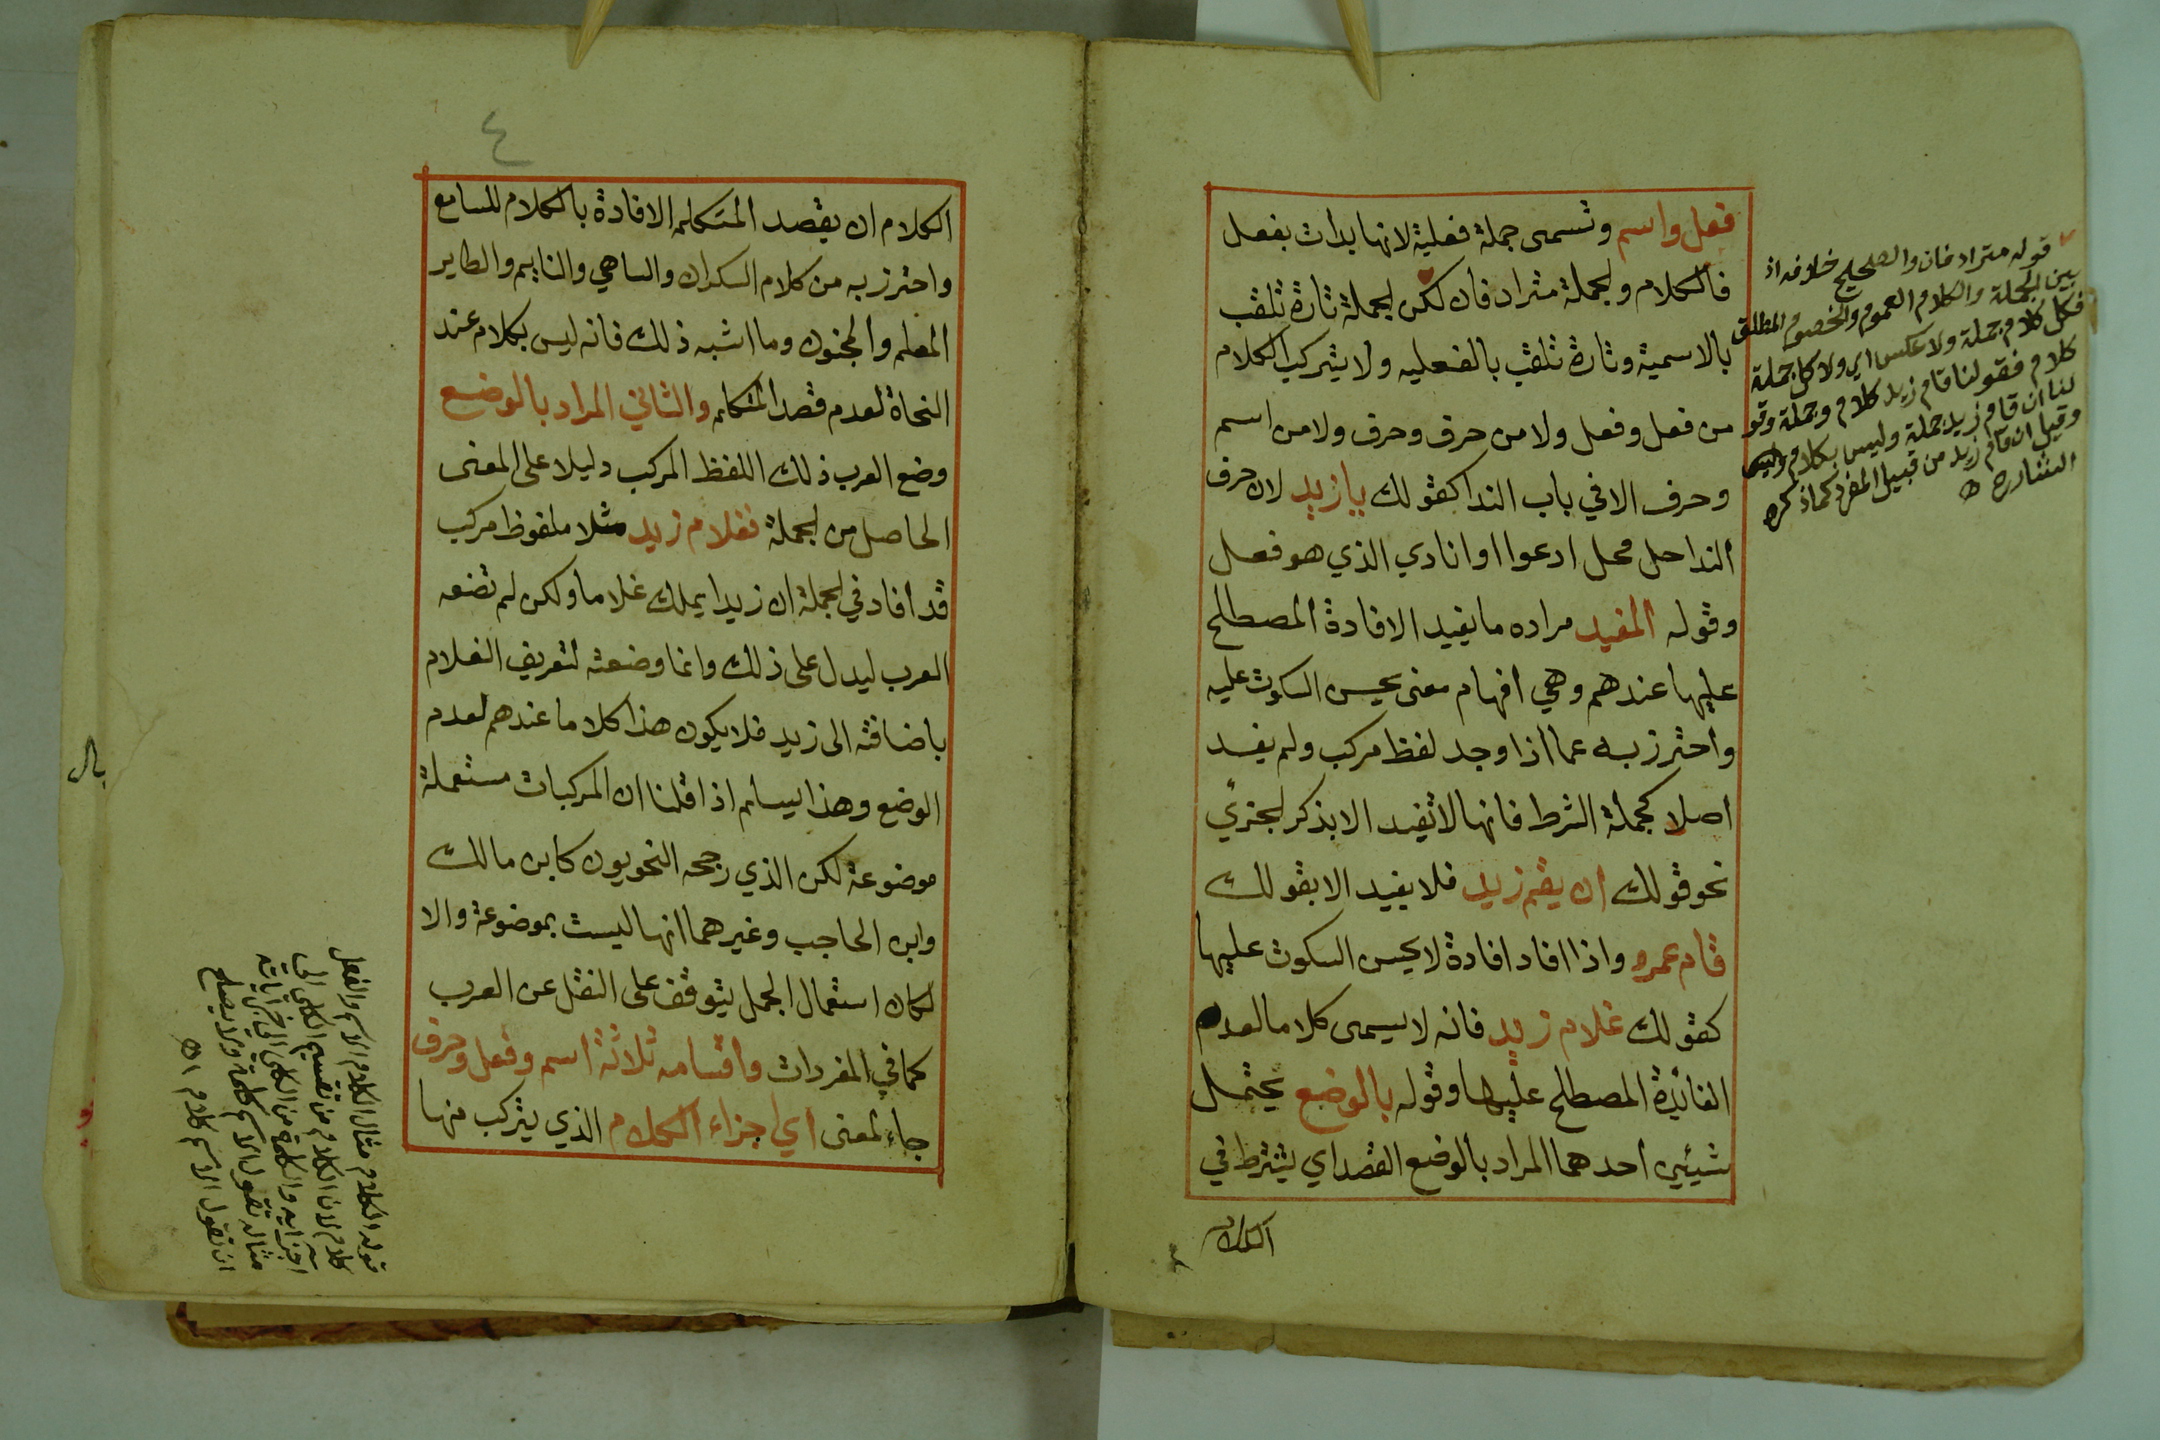 فعل واسم وتسمى جملة فعلية لانها بدات بفعل
فالكلام والجملة مترادفان لكن الجملة تارة تلقب
بالاسمية وتارة تلقب بالفعليه ولا يتركب الكلام
من فعل وفعل ولا من حرف وحرف ولا من اسم
وحرف الا في باب الندا كقولك يا زيد لان حرف
الندا حل محل ادعوا او انادي الذي هو فعل
وقوله المفيد مراده ما يفيد الافادة المصطلح
عليها عندهم وهي افهام معنى يحسن السكوت عليه
واحترز به عما اذا وجد لفظ مركب ولم يفد
اصلا كجملة الشرط فانها لا تفيد الا بذكر الجزئي
نحو قولك ان يقم زيد فلا يفيد الا بقولك
قام عمرو واذا افاد افادة لا يحسن السكوت عليها
كقولك غلام زيد فانه لا يسمى كلاما لعدم
الفائدة المصطلح عليها وقوله بالوضع يحتمل
شيئين احدهما المراد بالوضع القصد اي يشترط في
الكلام
قوله مترادفان والصحيح خلافه اذ
بين الجملة والكلام العموم والخصوص المطلق
فكل كلام جملة ولا عكس اي ولا كل جملة
كلام فقولنا قام زيد كلام وجملة وقو
لنا ان قام زيد جملة وليس بكلام
وقيل ان قام زيد من قبيل المفرد كما ذكره
الشارح
٤
الكلام ان يقصد المتكلم الافادة بالكلام للسامع
واحترز به من كلام السكران والساهي والنايم والطاير
المعلم والمجنون وما اشبه ذلك فانه ليس بكلام عند
النحاة لعدم قصد المتكلم والثاني المراد بالوضع
وضع العرب ذلك اللفظ المركب دليلا على المعنى
الحاصل من الجملة فغلام زيد مثلا ملفوظ مركب
قد افاد في الجملة ان زيدا يملك غلاما ولكن لم تضعه
العرب ليدل على ذلك وانما وضعته لتعريف الغلام
باضافته الى زيد فلا يكون هذا كلاما عندهم لعدم
الوضع وهذا يسلم اذا قلنا ان المركبات مستعملة
موضوعة لكن الذي رجحه النحويون كابن مالك
وابن الحاجب وغيرهما انها ليست بموضوعة والا
لكان استعمال الجمل يتوقف على النقل عن العرب
كما في المفردات واقسامه ثلاثة اسم وفعل وحرف
جاء لمعنى اي اجزاء الكلام الذي يتركب منها
قوله الكلام مثال الكلام الاسم والفعل
كلام لان الكلام من تقسيم الكلي الى
اجزايه والكلمة من الكلي الى جزئياته
مثاله تقول الاسم كلمة ولا يصلح
ان تقول الاسم كلام